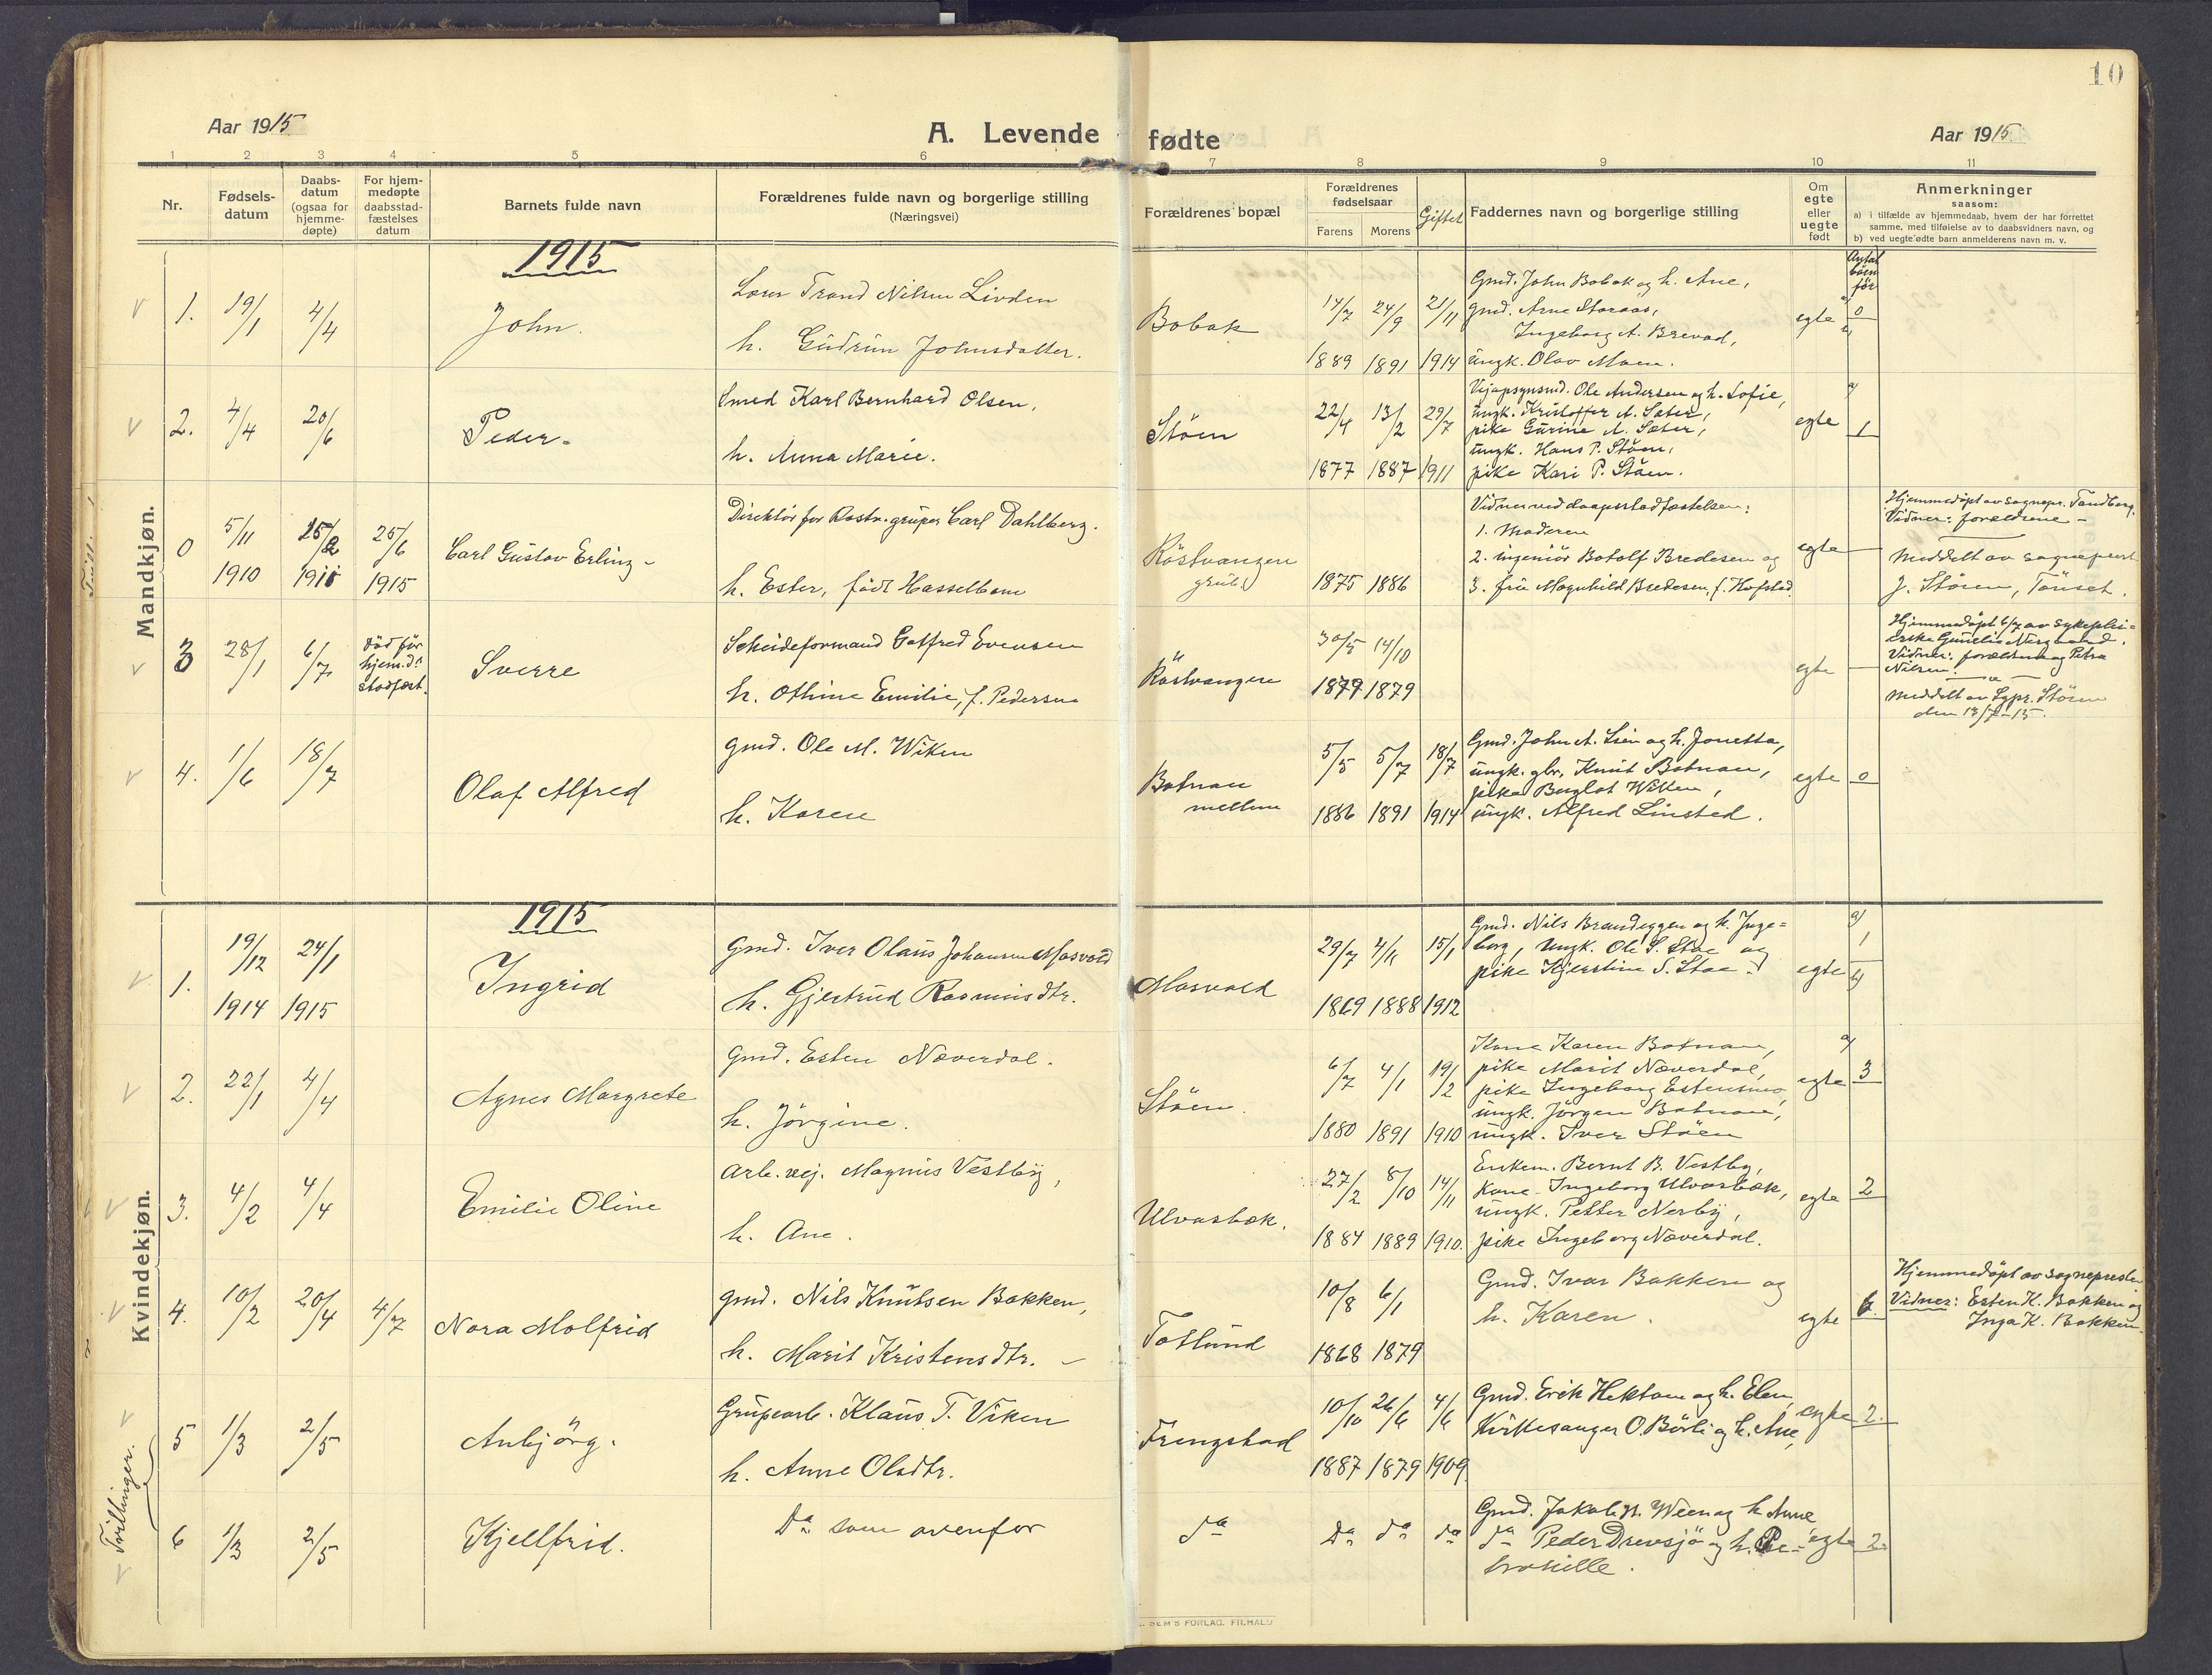 10
Aar 1915
A. Levende fødte
Aar 1915.
1 2 3 4 5 6 7 8 9 10 11
Nr.
Fødsels-
datum
Daabs-
datum
(ogsaa for
hjemme-
døpte)
For hjem-
medøpte
daabsstad-
fæstelses
datum
Barnets fulde navn
Forældrenes fulde navn og borgerlige stilling
(Næringsvei)
Forældrenes bopæl
Forældrenes
fødselsaar
Farens Morens
Giftet
Faddernes navn og borgerlige stilling
Om
egte
eller
uegte
født
Anmerkninger
saasom:
a) i tilfælde av hjemmedaab, hvem der har forrettet
samme, med tilføielse av to daabsvidners navn, og
b) ved uegte fødte barn anmelderens navn m. v.
Antal
børn
før
Mandkjøn.
1915
1. 19/1 4/4
John.
Trond Nilsen Livden
h. Gudrun Johnsdatter.
Bobak
14/7 24/9 21/11
1889 1891 1914
Gmd. John Bobak og h. Ane,
gmd. Arne Storaas,
Ingeborg A. Brevad,
ungk. Olav Moen.
egte 0
2. 4/4 20/6
Peder.
Smed Karl Bernhard Olsen,
h. Anna Marie.
Støen
22/4 13/2 29/7
1877 1887 1911
Vejopsynsmd. Ole Andersen og h. Sofie,
ungk. Kristoffer A. Sæter,
pike Gurine A. Sæter,
ungk. Hans P. Støen,
pike Kari P. Støen.
egte 1
0 5/11 25/2 25/6
1910 1911 1915
Carl Gustav Erling
Direktør for Røstv. gruper Carl Dahlberg.
h. Ester, født Hasselbom
Röstvangen
grube
1875 1886
Vidner ved daapsstadfæstelsen:
1. Moderen
2. ingeniör Botolf Bredesen og
3. frue Magnhild Bredesen, f. Hofstad
egte
Hjemmedøpt av sognepr. Tandberg.
Vidner: forældrene
Meddelt av sogneprest
J. Støren, Tönset.
3 28/1 6/7
død før
hjem.d.
stadfæst.
Sverre
Skeideformand Gotfred Evensen
h. Othine Emilie, f. Pedersen
Röstvangen
30/5 14/10
1879 1879
egte
Hjemmedøpt 6/7 av sykeplei-
erske Gunelie Nergaard.
Vidner: forældrene og Petra
Nilsen.
Meddelt av Sgpr. Støren
den 13/7-15.
4. 1/6 18/7
Olaf Alfred
gmd. Ole M. Wiken
h. Karen
Botnan
mellem
5/5 5/7 18/7
1886 1891 1914
Gmd. John A. Lien og h. Jonetta,
ungk. gbr. Knut Botnan,
pike Berglot Wiken,
ungk. Alfred Linsted.
egte 0
Kvindekjøn.
1915
1. 19/12 24/1
1914 1915
Ingrid
Gmd. Iver Olaus Johansen Masvold
h. Gjertrud Rasmusdtr.
Masvold
29/7 15/1
1869 1888 1912
Gmd. Nils Brandeggen og h. Inge=
borg, Ungk. Ole S. Stae og
pike Kjerstine S. Stae.
egte 1
2. 22/1 4/4
Agnes Margrete
Gmd. Esten Næverdal.
h. Jörgine.
Støen.
6/7 4/1 19/2
1880 1891 1910
Kone Karen Botnan,
pike Marit Næverdal,
pike Ingeborg Estensmo,
ungk. Jörgen Botnan,
ungk. Iver Støen
egte 3
3. 4/2 4/4
Emilie Oline
Arb. vej. Magnus Vestby,
h. Ane.
Ulvasbæk.
27/2 8/10 14/11
1884 1889 1910.
Enkem. Bernt B. Vestby,
Kone Ingeborg Ulvasbæk,
ungk. Petter Nerby,
pike Ingeborg Næverdal.
egte 2
4. 10/2 20/4 4/7
Nora Molfrid
gmd. Nils Knutsen Bakken,
h. Marit Kristensdtr.
Totlund
10/8 6/1
1868 1879
Gmd. Ivar Bakken og
h. Karen.
egte 6.
Hjemmedøpt av sognepresten
Vidner: Esten K. Bakken og
Inga K. Bakken.
Tvillinger.
5 1/3 2/5
Anbjörg.
Grupearb. Klaus T. Viken
h. Anne Olsdtr.
Frengstad
10/10 26/6 4/6
1887 1879 1909
Gmd. Erik Hektoen og h. Elen,
Kirkesanger O. Børli og h. Ane,
egte 2.
6 1/3 2/5
Kjellfrid.
Da som ovenfor
da Da da da
Gmd. Jakob N. Ween og h. Anne
da Peder Drevsjø og h. Pe-
tronille.
egte 2.
FORLAG. FILHALD